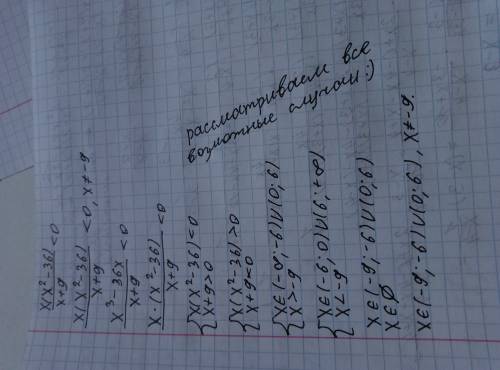 x(x²-36)/x+9 <0
x(x²-36)/x+9 <0, x≠9
x³-36x/x+9 <0
x·(x²-36)/x+9 <0
{x(x²-36)<0
x+9>0
{x(x²-36)>0
x+9<0
{x∈(-∞;-6)∪(0;6)
x>-9
{x∈(-6;0)∪(6;+∞)
x<-9
x∈(-9;-6)∪(0;6)
x∈∅
x∈(-9;-6)∪(0;6), x≠-9.
рассматриваем все
возможные случаи:)